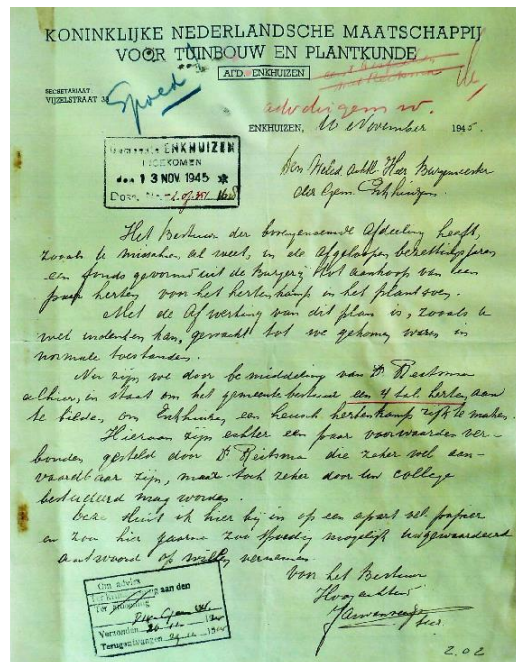 KONINKLIJKE NEDERLANDSCHE MAATSCHAPPIJ
VOOR TUINBOUW EN PLANTKUNDE
AFD. ENKHUIZEN
SECRETARIAAT
VIJZELSTRAAT 38
Spoed
adv. dir. gem. w.
ENKHUIZEN, 10 November 1945.
Gemeente ENKHUIZEN
INGEKOMEN
den 13 NOV. 1945
Doss. No.
Den Weled. Achtb. Heer Burgemeester
der Gem. Enkhuizen.
Het Bestuur der bovengenoemde Afdeeling heeft,
zooals U misschien al weet, in de afgeloopen bezettingsjaren
een fonds gevormd uit de Burgerij tot aankoop van een
paar herten voor het hertenkamp in het plantsoen.
Met de afwerking van dit plan is, zooals U
wel indenken kan, gewacht tot we gekomen waren in
normale toestanden.
Nu zijn we door bemiddeling van Dr Reitsma
alhier, in staat om het gemeentebestuur een 4 tal herten aan
te bieden, om Enkhuizen een heusch hertenkamp rijk te maken.
Hieraan zijn echter een paar voorwaarden ver-
bonden gesteld door Dr Reitsma die zeker wel aan-
vaardbaar zijn, maar toch zeker door uw college
bestudeerd mag worden.
Deze sluit ik hier bij in op een apart vel papier
en zou hier gaarne zoo spoedig mogelijk
antwoord op willen vernemen.
Voor het Bestuur
Hoogachtend
Secr.
Om advies
aan den
Ter afdoening
Verzonden
Terugontvangen
2.02